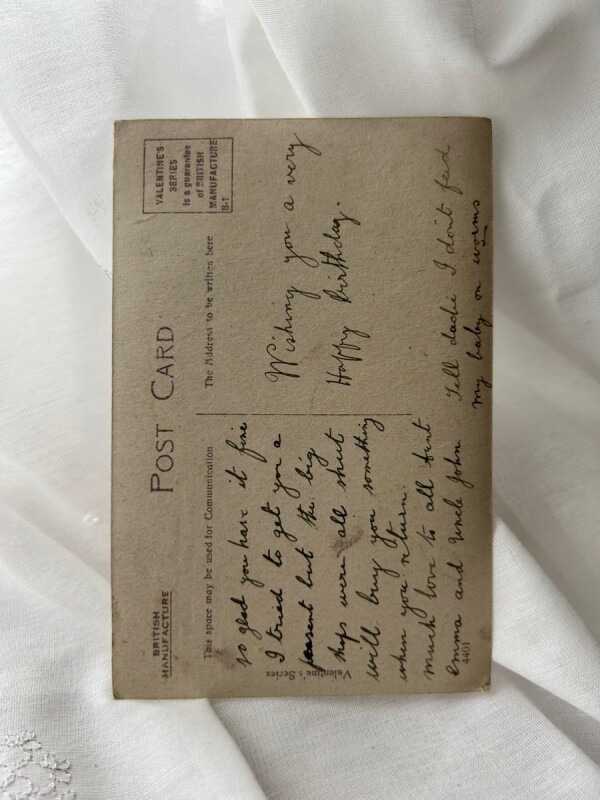 BRITISH
MANUFACTURE
POST CARD
VALENTINE'S
SERIES
is a guarantee
of BRITISH
MANUFACTURE
B-1
This space may be used for Communication
The Address to be written here
so glad you have it fine
I tried to get you a
present but the big
shps were all shut
will buy you something
when you return.
much love to all
Emma and Uncle John
Wishing you a very
Happy Birthday.
Tell dadie I don't feed
my baby on worms
Valentine's Series
4401